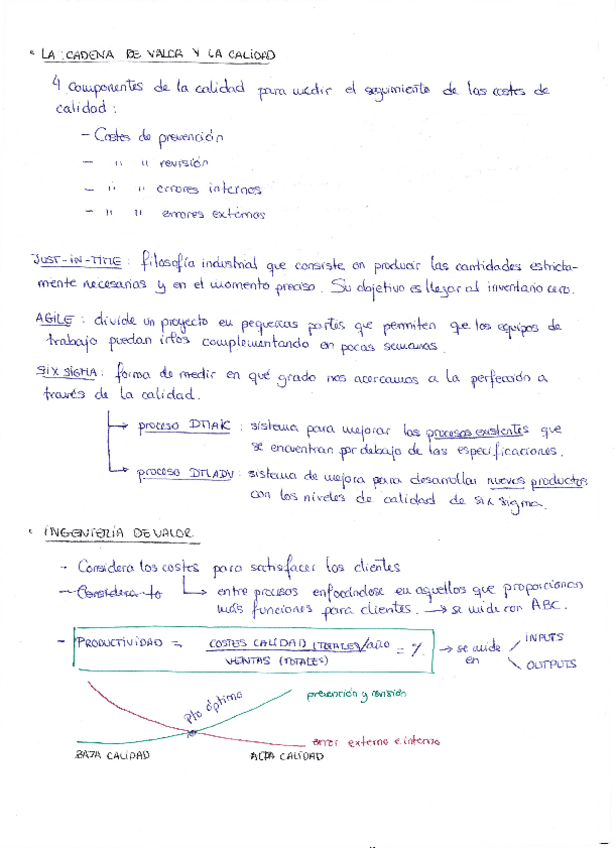 • LA CADENA DE VALOR Y LA CALIDAD
4 componentes de la calidad para medir el seguimiento de los costes de
calidad :
- Costes de prevención
- " " revisión
- " " errores internos
- " " errores externos
JUST-IN-TIME : filosofía industrial que consiste en producir las cantidades estricta-
mente necesarias y en el momento preciso. Su objetivo es llegar al inventario cero.
AGILE : divide un proyecto en pequeñas partes que permiten que los equipos de
trabajo puedan irlos complementando en pocas semanas.
SIX SIGMA : forma de medir en qué grado nos acercamos a la perfección a
través de la calidad.
proceso DMAIC : sistema para mejorar los procesos existentes que
se encuentran por debajo de las especificaciones.
proceso DMADV : sistema de mejora para desarrollar nuevos productos
con los niveles de calidad de six sigma.
• INGENIERÍA DE VALOR
- Considera los costes para satisfacer los clientes
- Considera to
entre procesos enfocándose en aquellos que proporcionan
más funciones para clientes. → se mide con ABC.
- PRODUCTIVIDAD = COSTES CALIDAD (TOTALES)/año = % → se mide en INPUTS
VENTAS (TOTALES) OUTPUTS
Pto óptimo prevención y revisión
error externo e interno
BAJA CALIDAD ALTA CALIDAD